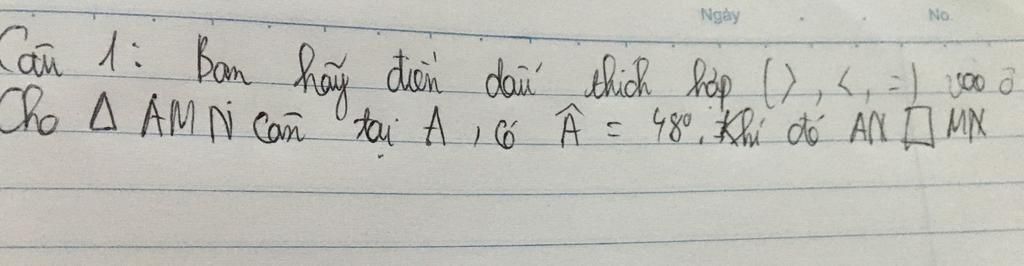 Ngày No.
Câu 1: Bạn hãy điền dấu thích hợp (>, <, =) vào ô
Cho Δ AMN cân tại A, có Â = 48°. Khi đó AN □ MN